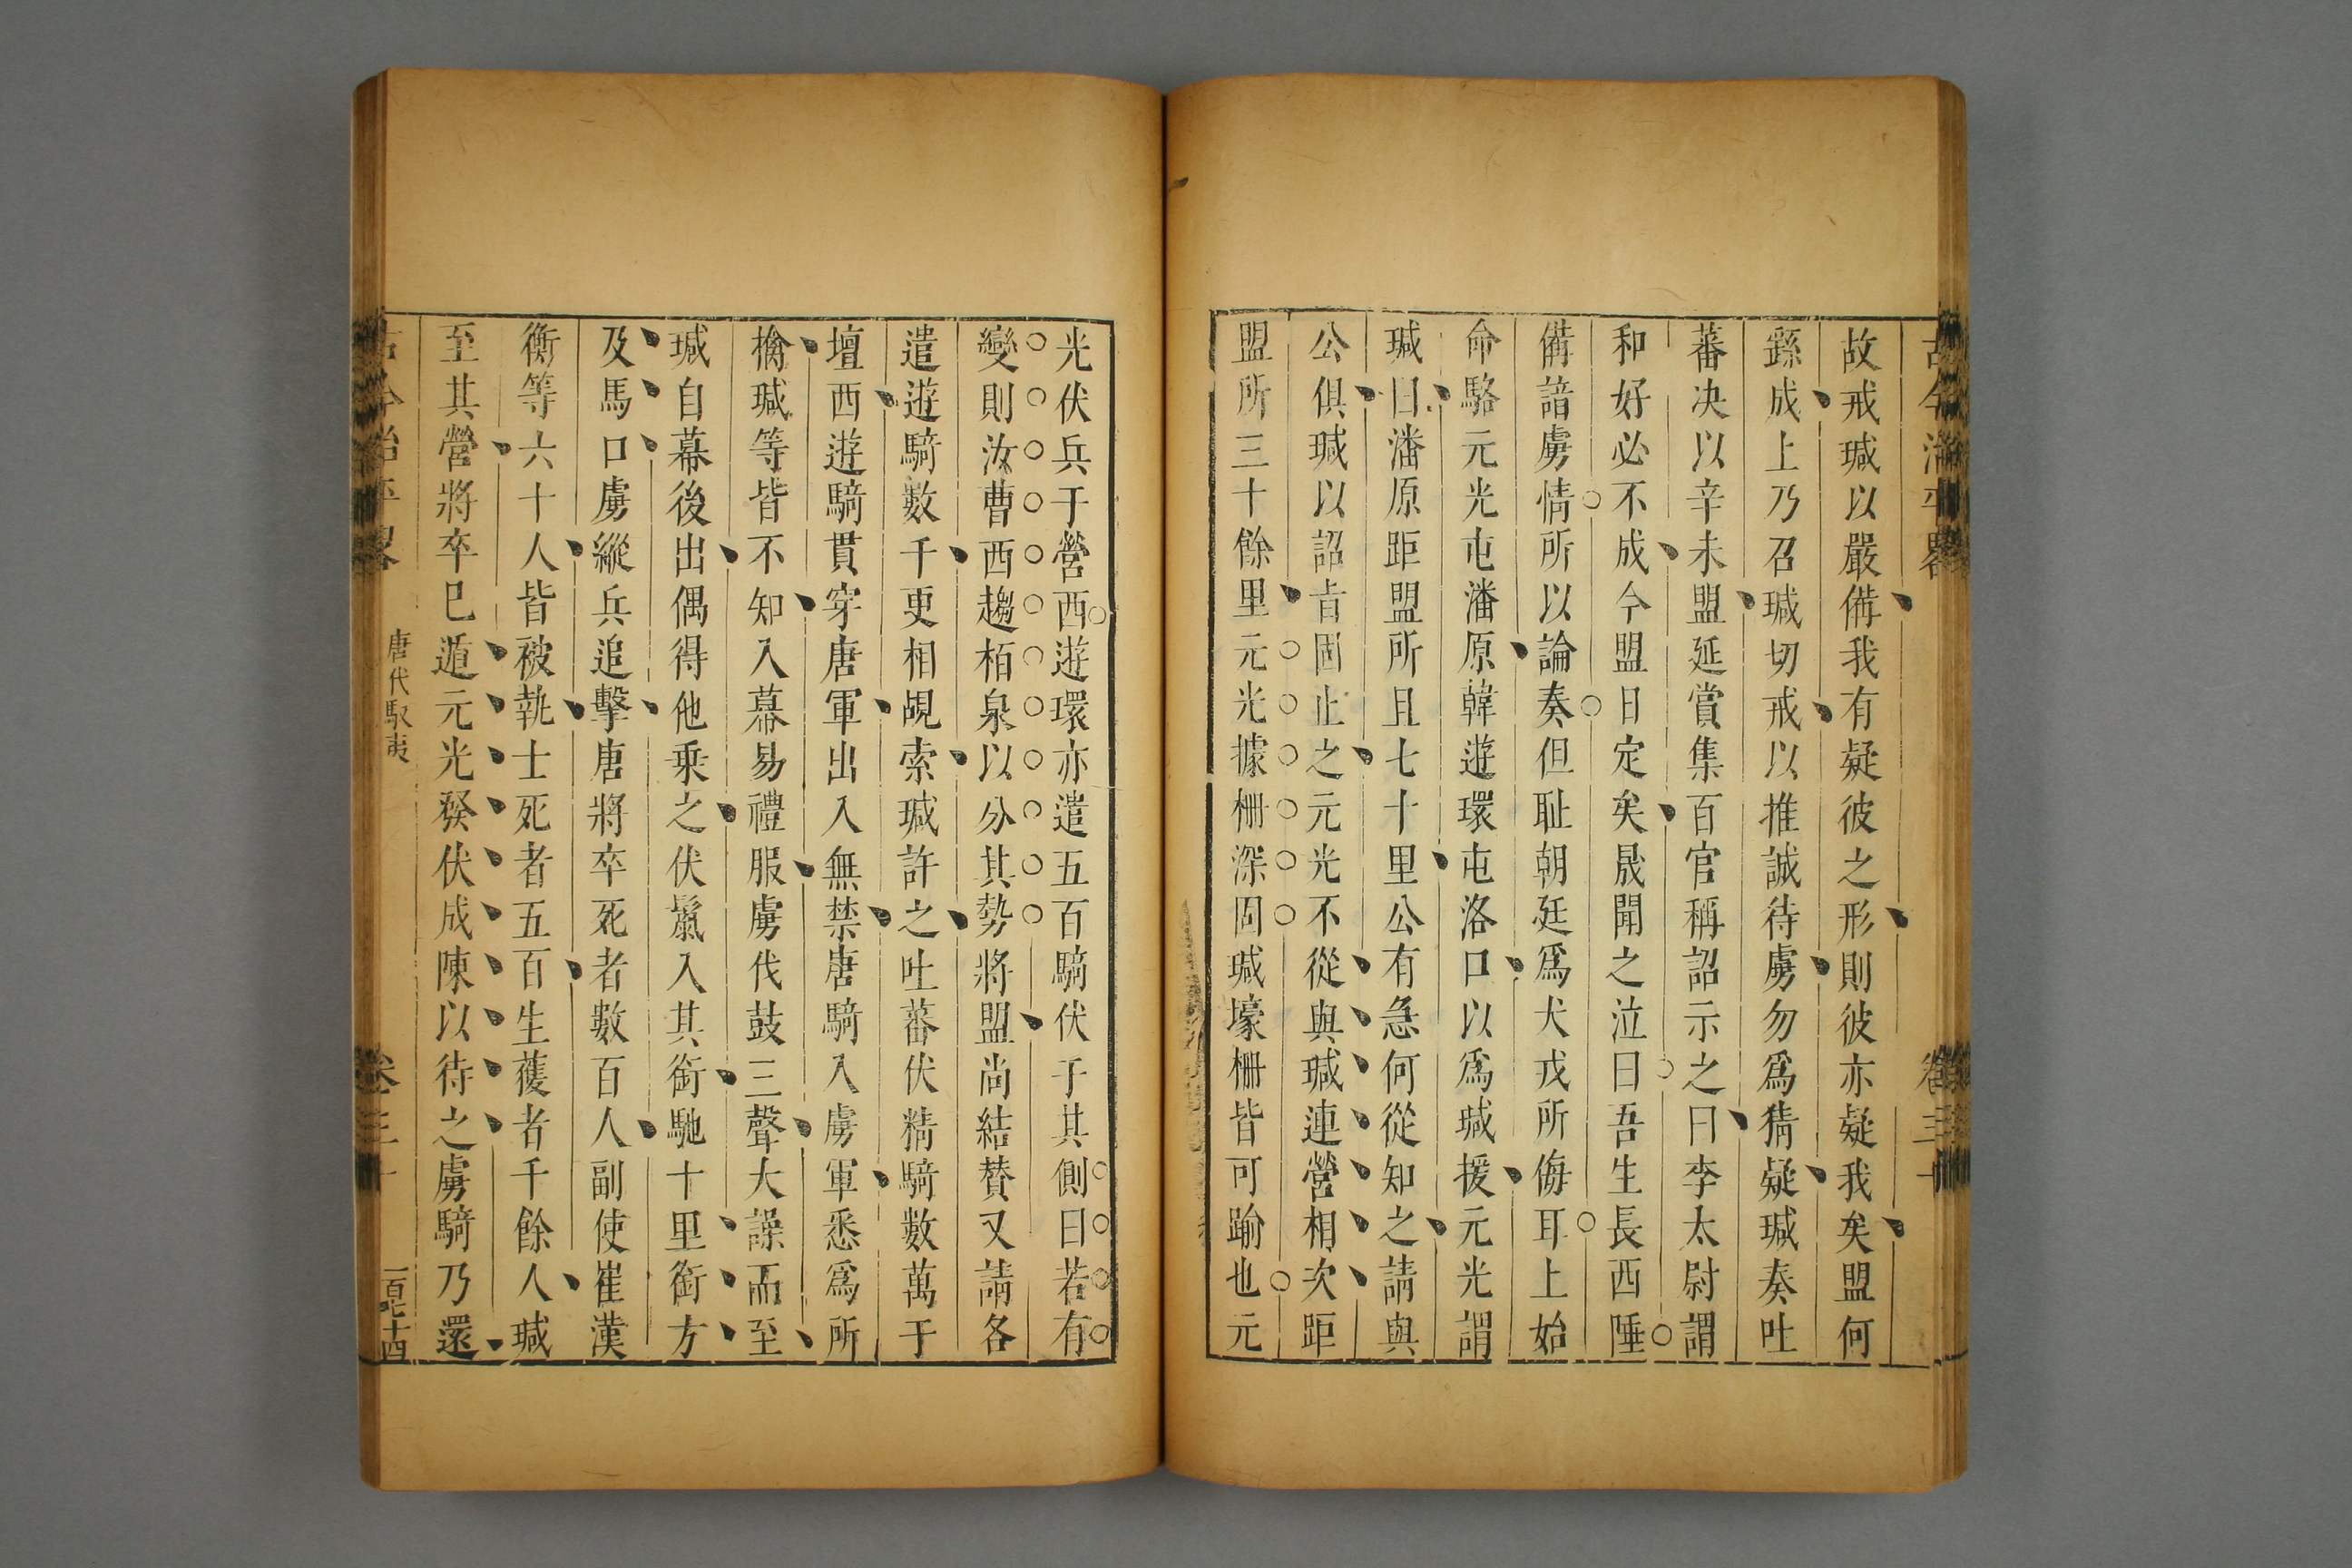 故戒瑊以嚴備我有疑彼之形則彼亦疑我矣盟何
繇成上乃召瑊切戒以推誠待虜勿爲猜疑瑊奏吐
蕃决以辛未盟延賞集百官稱詔示之曰李太尉謂
和好必不成今盟日定矣晟聞之泣曰吾生長西陲
備諳虜情所以論奏但耻朝廷爲犬戎所侮耳上始
命駱元光屯潘原韓遊環屯洛口以爲瑊援元光謂
瑊曰潘原距盟所且七十里公有急何從知之請與
公俱瑊以詔旨固止之元光不從與瑊連營相次距
盟所三十餘里元光據柵深固瑊壕柵皆可踰也元
光伏兵于營西遊環亦遣五百騎伏于其側曰若有
變則汝曹西趨栢泉以分其勢將盟尚結贊又請各
遣遊騎數千更相覘索瑊許之吐蕃伏精騎數萬于
壇西遊騎貫穿唐軍出入無禁唐騎入虜軍悉爲所
擒瑊等皆不知入幕易禮服虜伐鼓三聲大譟而至
瑊自幕後出偶得他乗之伏鬣入其銜馳十里銜方
及馬口虜縱兵追擊唐將卒死者數百人副使崔漢
衡等六十人皆被執士死者五百生獲者千餘人瑊
至其營將卒已遁元光發伏成陳以待之虜騎乃還
唐代馭夷
卷三十